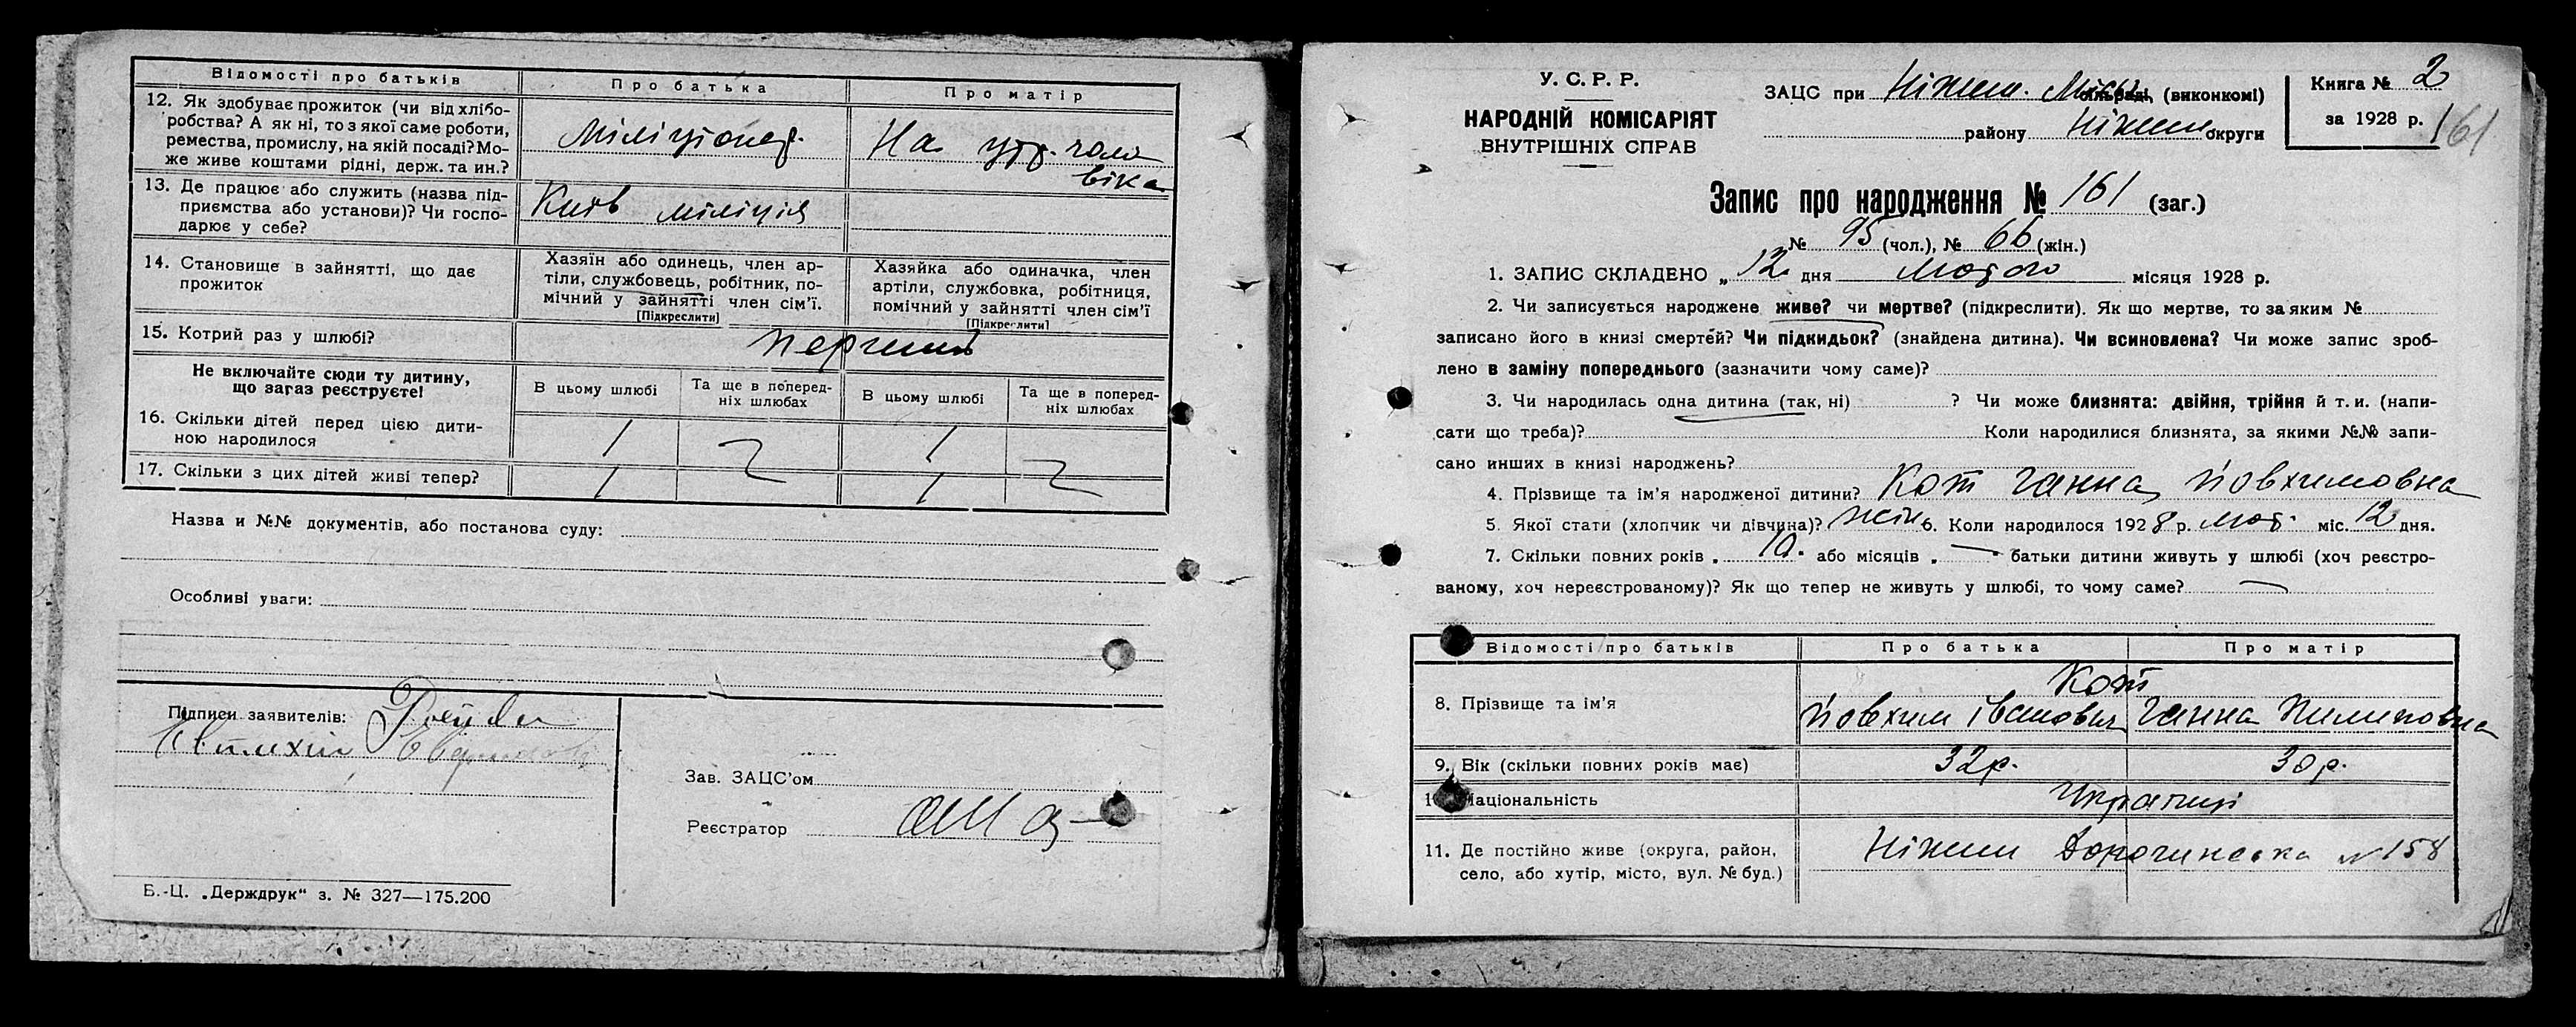 Відомості про батьків Про батька Про матір
12. Як здобуває прожиток (чи від хлібо-
робства? А як ні, то з якої саме роботи,
ремества, промислу, на якій посаді? Мо-
же живе коштами рідні, держ. та ин.?
Міліціонер.
На утр. чоло
віка
13. Де працює або служить (назва під-
приємства або установи)? Чи госпо-
дарює у себе?
Київ міліція
14. Становище в зайнятті, що дає
прожиток
Хазяїн або одинець, член ар-
тіли, службовець, робітник, по-
мічний у зайнятті член сім'ї.
[Підкреслити]
Хазяйка або одиначка, член
артіли, службовка, робітниця,
помічний у зайнятті член сім'ї
[Підкреслити]
15. Котрий раз у шлюбі?
перший
Не включайте сюди ту дитину,
що загаз реєструєте!
В цьому шлюбі
Та ще в поперед-
ніх шлюбах
В цьому шлюбі
Та ще в поперед-
ніх шлюбах
16. Скільки дітей перед цією дити-
ною народилося
1 1
17. Скільки з цих дітей живі тепер?
1 1
Назва и №№ документів, або постанова суду:
Особливі уваги:
Підписи заявителів:
Зав. ЗАЦС'ом
Реєстратор
Б.-Ц. „Держдрук" з. № 327—175.200
У. С. Р. Р.
НАРОДНІЙ КОМІСАРІЯТ
ВНУТРІШНІХ СПРАВ
ЗАЦС при Ніжин. сільраді, (виконкомі)
району Ніжин округи
Книга № 2
за 1928 р.
161
Запис про народження № 161 (заг.)
№ 95 (чол.), № 66 (жін.)
1. ЗАПИС СКЛАДЕНО „12 дня Лютого місяця 1928 р.
2. Чи записується народжене живе? чи мертве? (підкреслити). Як що мертве, то за яким №
записано його в книзі смертей? Чи підкидьок? (знайдена дитина). Чи всиновлена? Чи може запис зроб-
лено в заміну попереднього (зазначити чому саме)?
3. Чи народилась одна дитина (так, ні) ? Чи може близнята: двійня, трійня й т. и. (напи-
сати що треба)? Коли народилися близнята, за якими №№ запи-
сано инших в книзі народжень?
4. Прізвище та ім'я народженої дитини? Кот Ганна Йовхимовна
5. Якої стати (хлопчик чи дівчина)? жін 6. Коли народилося 1928 р. лют. міс. 12 дня.
7. Скільки повних років „ 10. або місяців „ — батьки дитини живуть у шлюбі (хоч реєстро-
ваному, хоч нереєстрованому)? Як що тепер не живуть у шлюбі, то чому саме? —
Відомості про батьків Про батька Про матір
8. Прізвище та ім'я
Кот
Йовхим Іванович Ганна Пилиповна
9. Вік (скільки повних років має) 32р. 30р.
Національність Українці
11. Де постійно живе (округа, район,
село, або хутір, місто, вул. № буд.)
Ніжин Дорогинська № 158